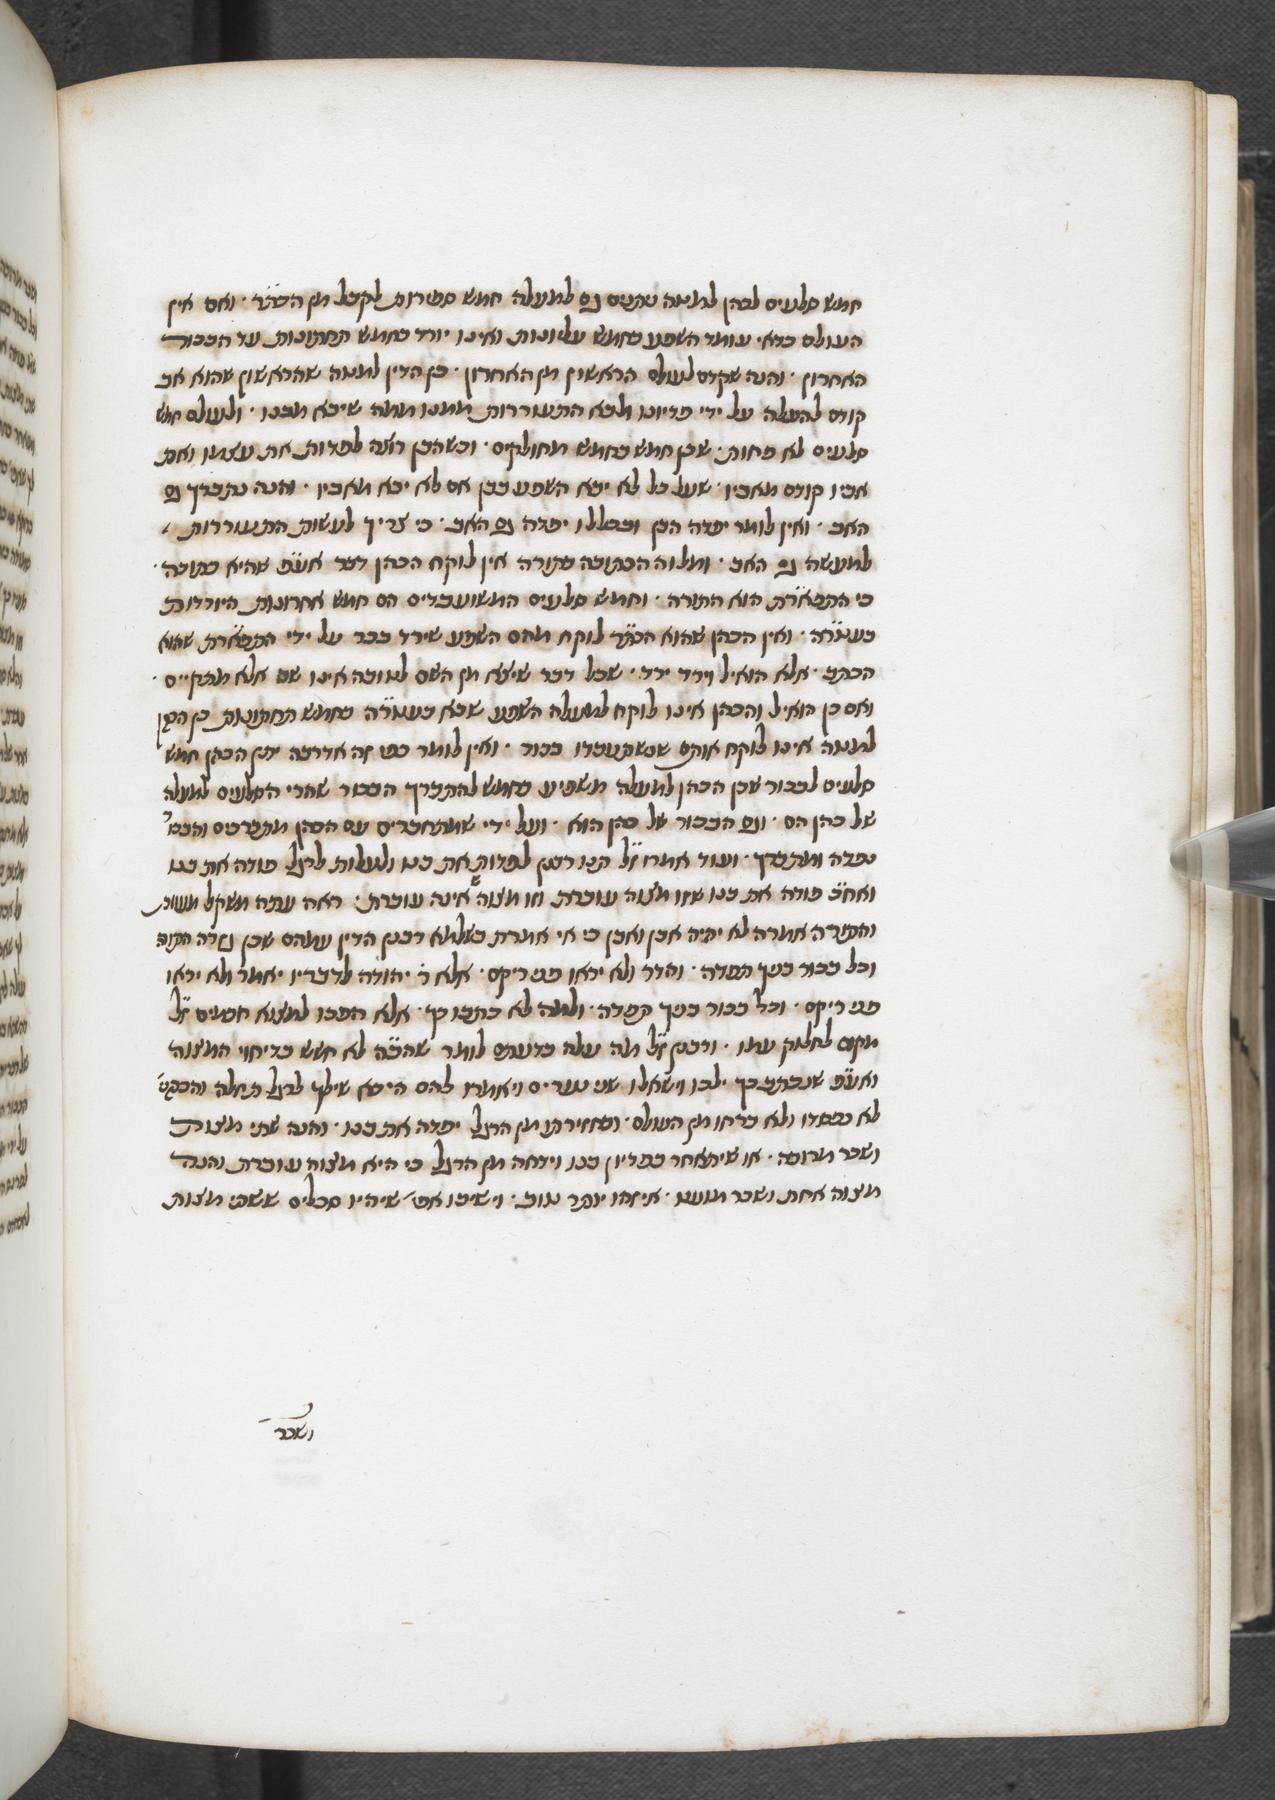 חמש סלעים לכהן למטה נותנים גם למעלה חמש ספירות לקבל מן הכתר · ואם אין
העולם כדאי עומד השפע בחמש עליונות ואינו יורד בחמש תחתונות עד הבכור
האחרון · והנה שקדם לעולם הראשון מן האחרון · כן הדין למטה שהראשון שהוא אב
קודם להעלה על ידי פדיונו ולבא התעוררות ממנו ממה שיבא מבנו · ולעולם חמש
סלעים לא פחות · שכן חמש בחמש מחולקים · וכשהבן רוצה לפדות את עצמו ואת
אביו קודם מאביו · שעל כל לא יבא השפע בבן אם לא יבא מאביו · והנה נתברך גם
האב · ואין לומר יפדה הבן ובכללו יפדה גם האב · כי צריך לעשות התעוררות
למעשה גם האב · ומלוה הכתובה בתורה אין לוקח הכהן דבר אע״פ שהיא כתובה ·
כי התפארת הוא התורה · וחמש סלעים המשועבדים הם חמש אחרונות היורדות
בעטרה · ואין הכהן שהוא הכתר לוקח מהם השפע שירד כבר על ידי התפארת שהוא
הכתב · אלא הואיל וירד ירד · שכל דבר שיצא מן השם לטובה אינו שם אלא מתקיים ·
ואם כן הואיל והכהן אינו לוקח למעלה השפע שבא בעטרה בחמש תחתונות כן הכהן
למטה אינו לוקח אותם שנשתעבדו בכור · ואין לומר כפי זה אדרבה יתן הכהן חמש
סלעים לבכור שכן הכהן למעלה משפיע בחמש להתברך הבכור שהרי הסלעים למעלה
של כהן הם · וגם הבכור של כהן הוא · ועל ידי שמתחברים עם הכהן מתברכים והבכו׳
נפדה ומתברך · ועוד אמרו ז״ל תנו רבנן לפדות את בנו ולעלות לרגל פודה את בנו
ואח״כ פודה את בנו שזו מצוה עוברת וזו מצוה אינה עוברת : ראה עתה משקל מעשה
והתורה אמרה לא יהיה אבן ואבן כי אי אמרת בשלמא רבנן הדין עמהם שכן סדרה התורה
וכל בכור בניך תפדה · והדר ולא יראו פני ריקם · אלא ר׳ יהודה לדבריו יאמר ולא יראו
פני ריקם · וכל בכור בניך תפדה · ולמה לא כתבו כך · אלא חפצו למצוא חכמים ז״ל
מקום לחלוק עמו · ורבנן ז״ל מה עלה בדעתם לומר שהב״ה לא חשש בדיחוי המצוה
ואע״פ שנכתב כך ילכו וישאלו שני נערים ויאמרו להם היכא שילך לרגל תחלה והכסף
לא נפסדו ולא ברחו מן העולם · וכחזירתו מן הרגל יפדה את בנו · והנה שתי מצות
ושכר מרובה · או שיתאחר בפדיון בנו וידחה מן הרגל כי היא מצוה עוברת והנה
מצוה אחת ושכר מועט · איזהו יותר טוב · וישיבו אפי׳ שיהיו סכלים ששתי מצות
ושכר